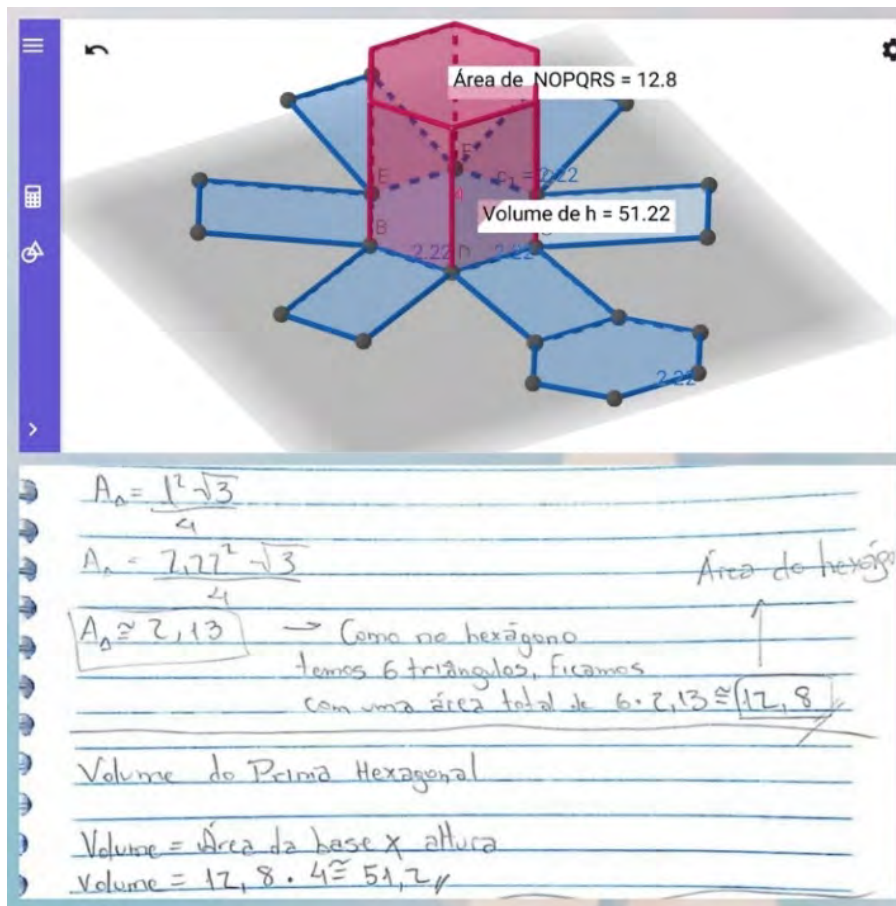 Área de NOPQRS = 12.8
F
E
= 2.22
4
Volume de h = 51.22
B
2.22
D
2.22
2.22
A△ = l² √3
4
A△ = 2,22² √3
4
Área do hexágo
A△ ≅ 2,13 → Como no hexágono
temos 6 triângulos, ficamos
com uma área total de 6 . 2,13 ≅ 12,8
Volume do Prima Hexagonal
Volume = Área da base x altura
Volume = 12,8 . 4 ≅ 51,2